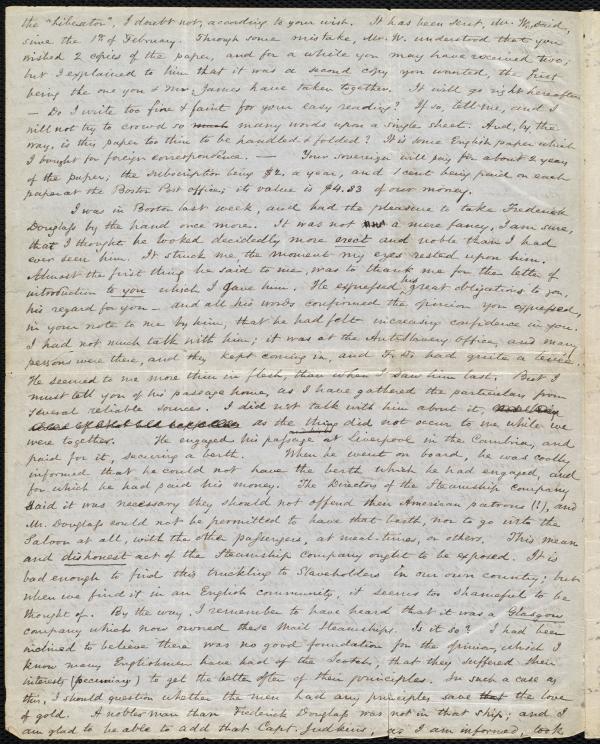 the "Liberator", I doubt not, according to your wish. It has been sent, Mr. W. said,
since the 1st of February. Through some mistake, Mr. W. understood that you
wished 2 copies of the paper, and for a while you may have received two;
but I explained to him that it was a second copy you wanted, the first
being the one you & Mrs. James have taken together. It will go right hereafter.
— Do I write too fine & faint for your easy reading? If so, tell me, and I
will not try to crowd so much many words upon a single sheet. And, by the
way, is this paper too thin to be handled & folded? It is some English paper which
I bought for foreign correspondence. — Your sovereign will pay for about 2 years
of the paper; the subscription being $2. a year, and 1 cent being paid on each
paper at the Boston Post office; its value is $4.83 of our money.
I was in Boston last week, and had the pleasure to take Frederick
Douglass by the hand once more. It was not a mere fancy, I am sure,
that I thought he looked decidedly more erect and noble than I had
ever seen him. It struck me the moment my eyes rested upon him.
Almost the first thing he said to me, was to thank me for the letter of
introduction to you which I gave him. He expressed his great obligations to you,
his regard for you — and all his words confirmed the opinion you expressed,
in your note to me by him, that he had felt increasing confidence in you.
I had not much talk with him; it was at the Antislavery Office, and many
persons were there, and they kept coming in, and F. D. had quite a levee.
He seemed to me more thin in flesh, than when I saw him last. But I
must tell you of his passage home, as I have gathered the particulars from
several reliable sources. I did not talk with him about it,
as the thing did not occur to me while we
were together. He engaged his passage at Liverpool in the Cambria, and
paid for it, securing a berth. When he went on board, he was coolly
informed that he could not have the berth which he had engaged, and
for which he had paid his money. The Directors of the Steamship Company
said it was necessary they should not offend their American patrons (!), and
Mr. Douglass could not be permitted to have that berth, nor to go into the
Saloon at all, with the other passengers, at meal-times, or others. This mean
and dishonest act of the Steamship Company ought to be exposed. It is
bad enough to find this truckling to Slaveholders in our own country; but
when we find it in an English community, it seems too shameful to be
thought of. By the way, I remember to have heard that it was a Glasgow
company which now owned these Mail Steamships. Is it so? I had been
inclined to believe there was no good foundation for the opinion, which I
know many Englishmen have had of the Scotch, that they suffered their
interests (pecuniary) to get the better often of their principles. In such a case as
this, I should question whether the men had any principles, save that the love
of gold. A nobler man than Frederick Douglass was not in that ship; and I
am glad to be able to add that Capt. Judkins, as I am informed, took